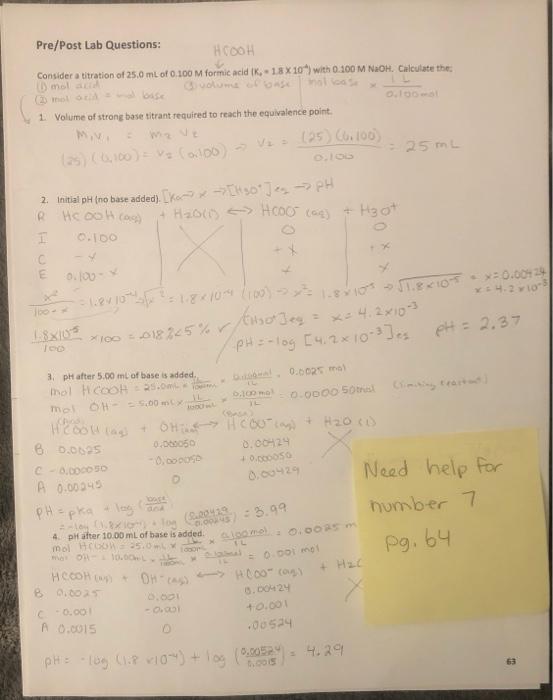 Pre/Post Lab Questions:
HCOOH
Consider a titration of 25.0 mL of 0.100 M formic acid (Ka = 1.8 X 10⁻⁴) with 0.100 M NaOH. Calculate the:
① mol acid ③ volume of base mol base × 1 L / 0.100 mol
② mol acid = mol base
1. Volume of strong base titrant required to reach the equivalence point.
M₁V₁ = M₂V₂
(25)(0.100) = V₂(0.100) → V₂ = (25)(0.100) / 0.100 = 25 mL
2. Initial pH (no base added). [Ka → x → [H3O⁺]eq → pH
R HCOOH(aq) + H2O(l) ↔ HCOO⁻(aq) + H3O⁺
I 0.100 0 0
C -x +x +x
E 0.100-x x x
x² / 100-x = 1.8×10⁻⁴ → x² = 1.8×10⁻⁴ (100) → x² = 1.8×10⁻⁵ → √1.8×10⁻⁵ = x = 0.00424
x = 4.2×10⁻³
1.8×10⁻⁵ / 100 × 100 = .018% < 5% ✓ [H3O⁺]eq = x = 4.2×10⁻³
pH = -log [4.2×10⁻³]eq pH = 2.37
3. pH after 5.00 mL of base is added.
mol HCOOH = 25.0mL × 1L / 1000mL × 0.100mol / 1L = 0.0025 mol
mol OH⁻ = 5.00mL × 1L / 1000mL × 0.100mol / 1L = 0.000050mol (limiting reactant)
(Acid) (Base)
HCOOH(aq) + OH⁻(aq) ↔ HCOO⁻(aq) + H2O(l)
B 0.0025 0.000050 0.00424
C -0.000050 -0.000050 +0.000050
A 0.00245 0 0.00429
pH = pKa + log (base / acid)
= -log (1.8×10⁻⁴) + log (0.00429 / 0.00245) = 3.99
4. pH after 10.00 mL of base is added.
mol HCOOH = 25.0mL × 1L / 1000mL × 0.100mol / 1L = 0.0025 m
mol OH⁻ = 10.00mL × 1L / 1000mL × 0.100mol / 1L = 0.001 mol
HCOOH(aq) + OH⁻(aq) ↔ HCOO⁻(aq) + H2O
B 0.0025 0.001 0.00424
C -0.001 -0.001 +0.001
A 0.0015 0 .00524
pH = -log (1.8×10⁻⁴) + log (0.00524 / 0.0015) = 4.29
Need help for
number 7
pg. 64
63